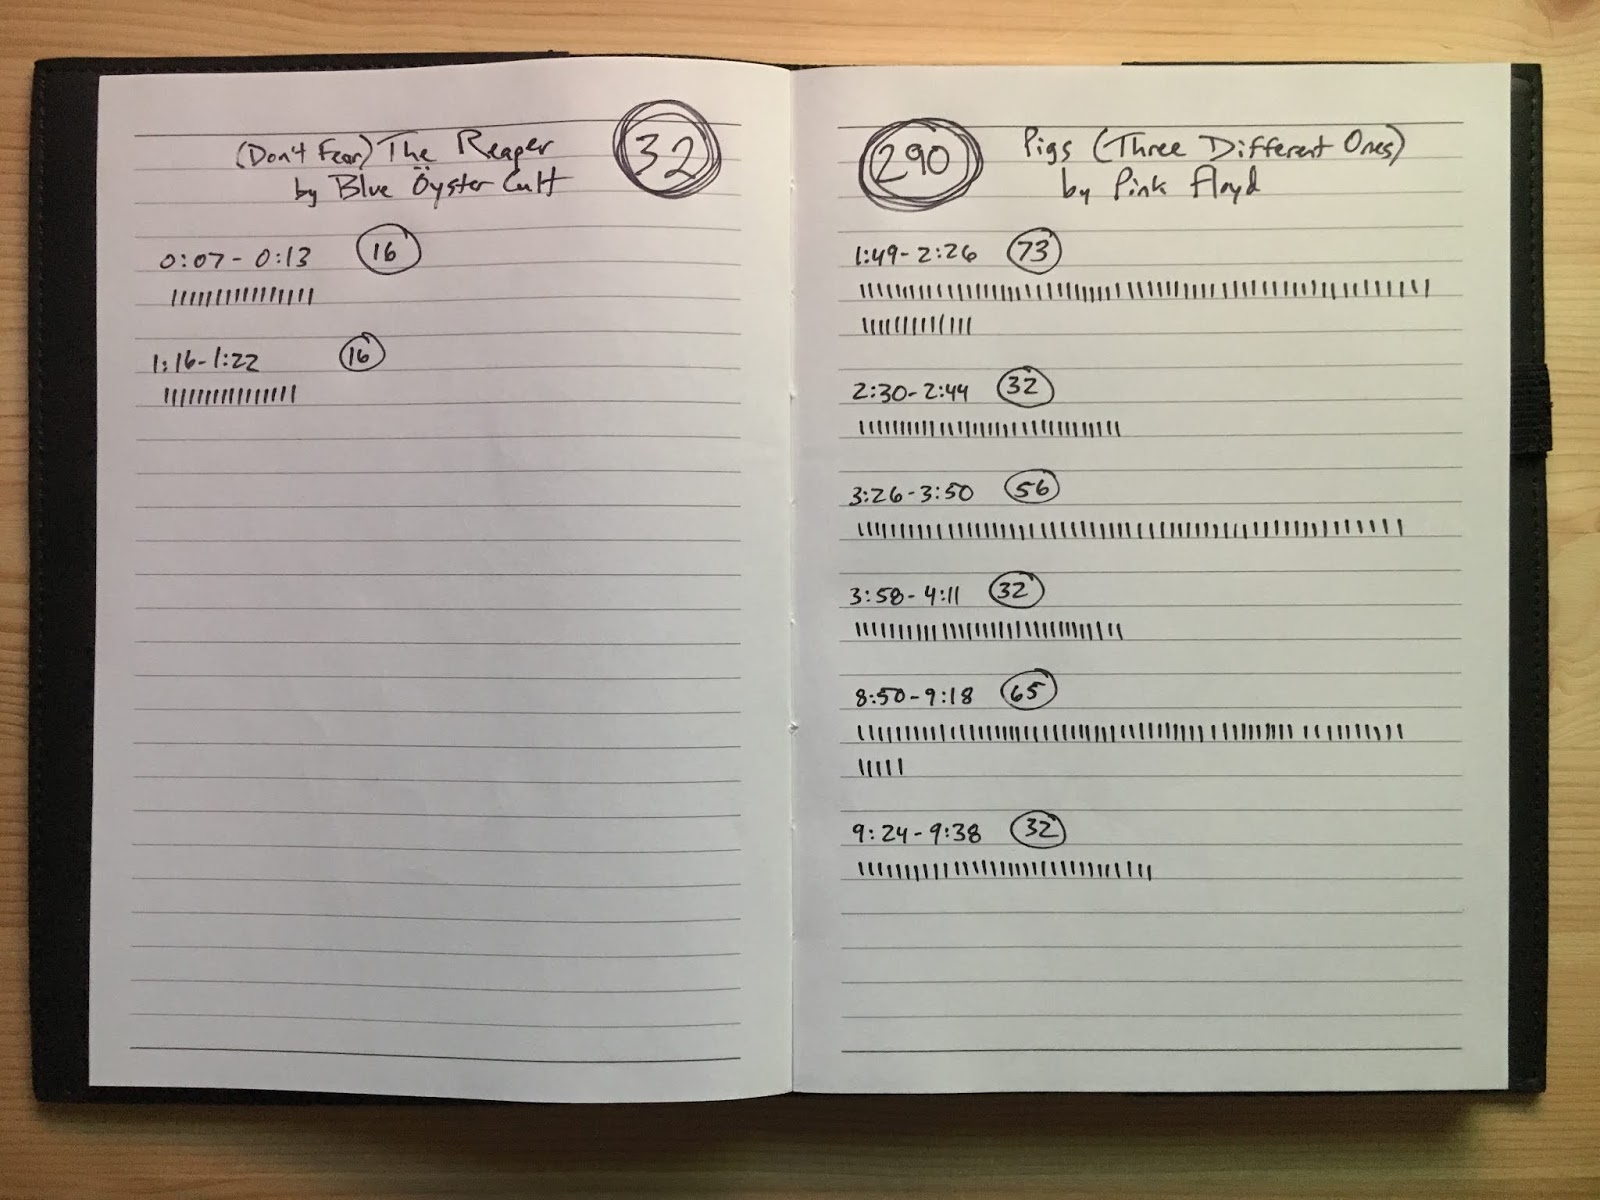 (Don't Fear) The Reaper
by Blue Öyster Cult
32
0:07 - 0:13 16
1:16-1:22 16
290
Pigs (Three Different Ones)
by Pink Floyd
1:49-2:26 73
2:30-2:44 32
3:26-3:50 56
3:58-4:11 32
8:50-9:18 65
9:24-9:38 32